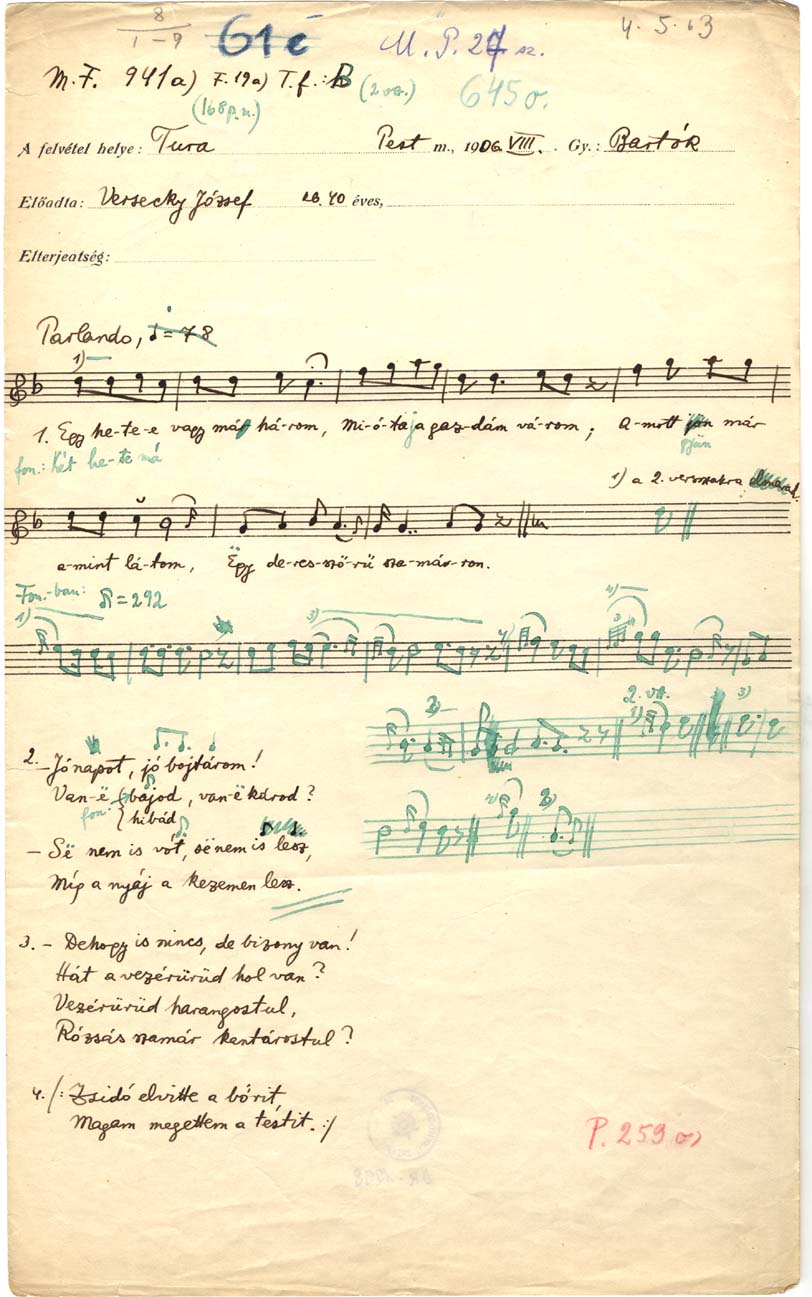 8
1-9
61 e
M. P. 27 sz.
4. 5. 13
M. F. 941a) F. 19a) T. f.: B (2 vsz.)
645 o.
(168 p. n.)
A felvétel helye: Tura Pest m., 1906. VIII. Gy.: Bartók
Előadta: Versecky József kb. 40 éves,
Elterjeatség:
Parlando, ♩= 78
1)
1. Egy he-te-e vagy már há-rom, Mi-ó-ta ja gaz-dám vá-rom; A-mott jön már
gyün
fon.: Két he-te má
1) a 2. versszakra elmarad.
a-mint lá-tom, Ëgy de-res-sző-rü sza-már-ron.
Fon.-ban: ♪ = 292
1) 3) 4)
2. vsz.
2. - Jónapot, jó bojtárom!
Van-ë bajod, van-ë károd?
fon. hibád
- Së nem is vót, së nem is lesz,
Míg a nyáj a kezemen lesz.
3. - Dehogy is nincs, de bizony van!
Hát a vezérürüd hol van?
Vezérürüd harangostul,
Rózsás szamár kantárostul?
4. /: Zsidó elvitte a bőrit,
Magam megettem a téstit. :/
P. 259 o)